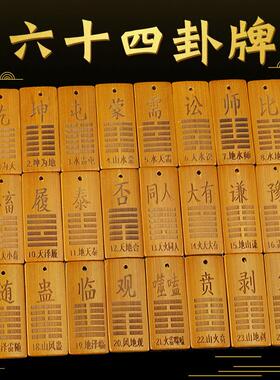 六十四卦牌
乾 坤 屯 蒙 需 讼 师 比
2.坤为地 3.水雷屯 4.山水蒙 5.水天需 6.天水讼 7.地水师
畜 履 泰 否 同人 大有 谦 豫
10.天泽履 11.地天泰 12.天地否 13.天火同人 14.火天大有 15.地山谦
随 蛊 临 观 噬嗑 贲 剥
泽雷随 18.山风蛊 19.地泽临 20.风地观 21.火雷噬嗑 22.山火贲 23.山地剥